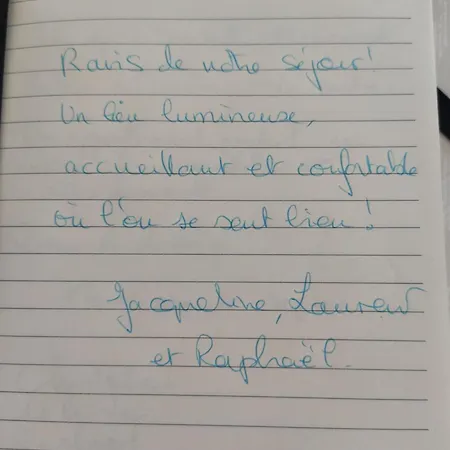 Ravis de notre séjour!
Un lieu lumineuse,
accueillant et confortable
où l'on se sent bien!
Jacqueline, Laurent
et Raphaël.